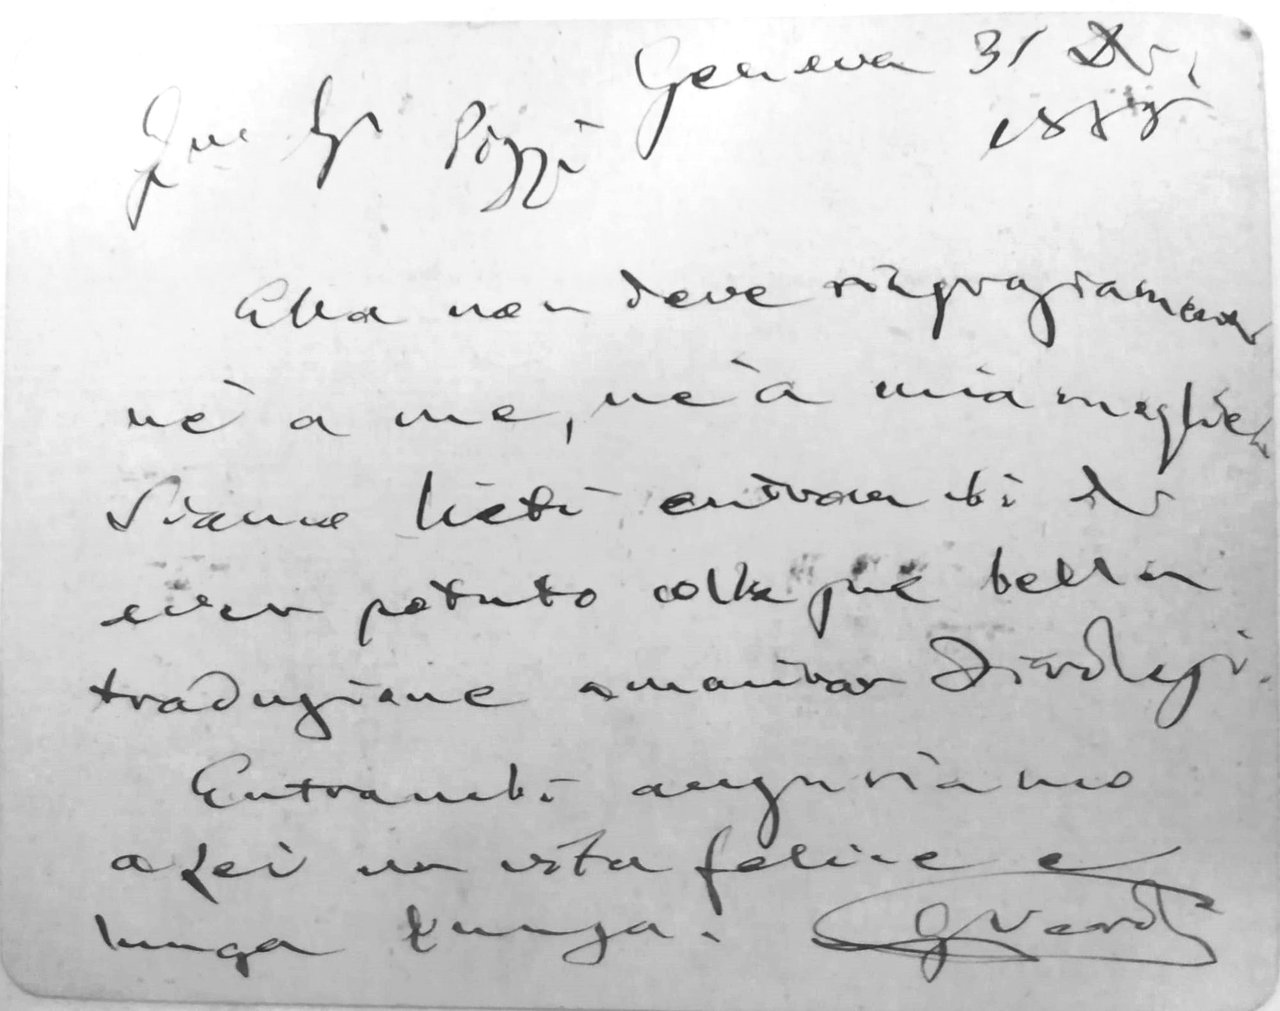 Genova 31 Dic.
Sig. Pizzi
Ella non deve ringraziamenti
nè a me, nè a mia moglie.
Siamo lieti entrambi di
aver potuto colla sua bella
traduzione ammirar Firdusi.
Entrambi auguriamo
a Lei una vita felice e
lunga lunga. G Verdi